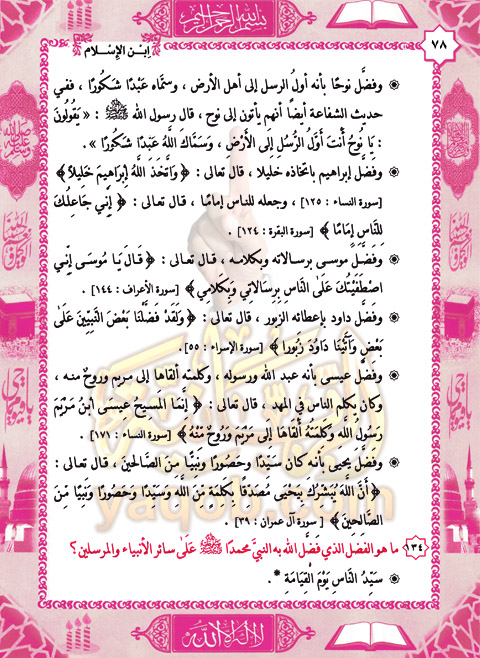 بسم الله الرحمن الرحيم
٧٨
ابن الإسلام
وفضَّل نوحًا بأنه أولُ الرسل إلى أهل الأرض ، وسمَّاه عَبْدًا شَكُورًا ، ففي
حديث الشفاعة أيضًا أنهم يأتون إلى نوح ، قال رسول الله ﷺ : « يَقُولُونَ
: يَا نُوحُ أَنْتَ أَوَّلُ الرُّسُلِ إِلَى الْأَرْضِ ، وَسَمَّاكَ اللَّهُ عَبْدًا شَكُورًا » .
وفضَّل إبراهيم باتخاذه خليلا ، قال تعالى : ﴿ وَاتَّخَذَ اللَّهُ إِبْرَاهِيمَ خَلِيلاً ﴾
[سورة النساء : ١٢٥] ، وجعله للناس إمامًا ، قال تعالى : ﴿ إِنِّي جَاعِلُكَ
لِلنَّاسِ إِمَامًا ﴾ [سورة البقرة : ١٢٤] .
وفضَّل موسى برسالاته وبكلامه ، قال تعالى : ﴿ قَالَ يَا مُوسَى إِنِّي
اصْطَفَيْتُكَ عَلَى النَّاسِ بِرِسَالَاتِي وَبِكَلَامِي ﴾ [سورة الأعراف : ١٤٤]
وفضَّل داود بإعطائه الزبور ، قال تعالى : ﴿ وَلَقَدْ فَضَّلْنَا بَعْضَ النَّبِيِّينَ عَلَى
بَعْضٍ وَآتَيْنَا دَاوُدَ زَبُورًا ﴾ [سورة الإسراء : ٥٥] .
وفضَّل عيسى بأنه عبد الله ورسوله ، وكلمته ألقاها إلى مريم وروحٌ منه ،
وكان يكلم الناس في المهد ، قال تعالى : ﴿ إِنَّمَا الْمَسِيحُ عِيسَى ابْنُ مَرْيَمَ
رَسُولُ اللَّهِ وَكَلِمَتُهُ أَلْقَاهَا إِلَى مَرْيَمَ وَرُوحٌ مِنْهُ ﴾ [سورة النساء : ١٧١] .
وفضَّل يحيى بأنه كان سَيِّدًا وحَصُورًا وَنَبِيًّا مِنَ الصَّالحين ، قال تعالى :
﴿أَنَّ اللَّهَ يُبَشِّرُكَ بِيَحْيَى مُصَدِّقًا بِكَلِمَةٍ مِنَ اللَّهِ وَسَيِّدًا وَحَصُورًا وَنَبِيًّا مِنَ
الصَّالِحِينَ ﴾ [ سورة آل عمران : ٣٩] .
١٣٤ ما هو الفضل الذي فَضَّلَ الله به النبيَّ محمدًا ﷺ عَلَى سائر الأنبياء والمرسلين؟
سَيِّدُ النَّاسِ يَوْمَ الْقِيَامَةِ * .
yaqob.com
لا إله إلا الله